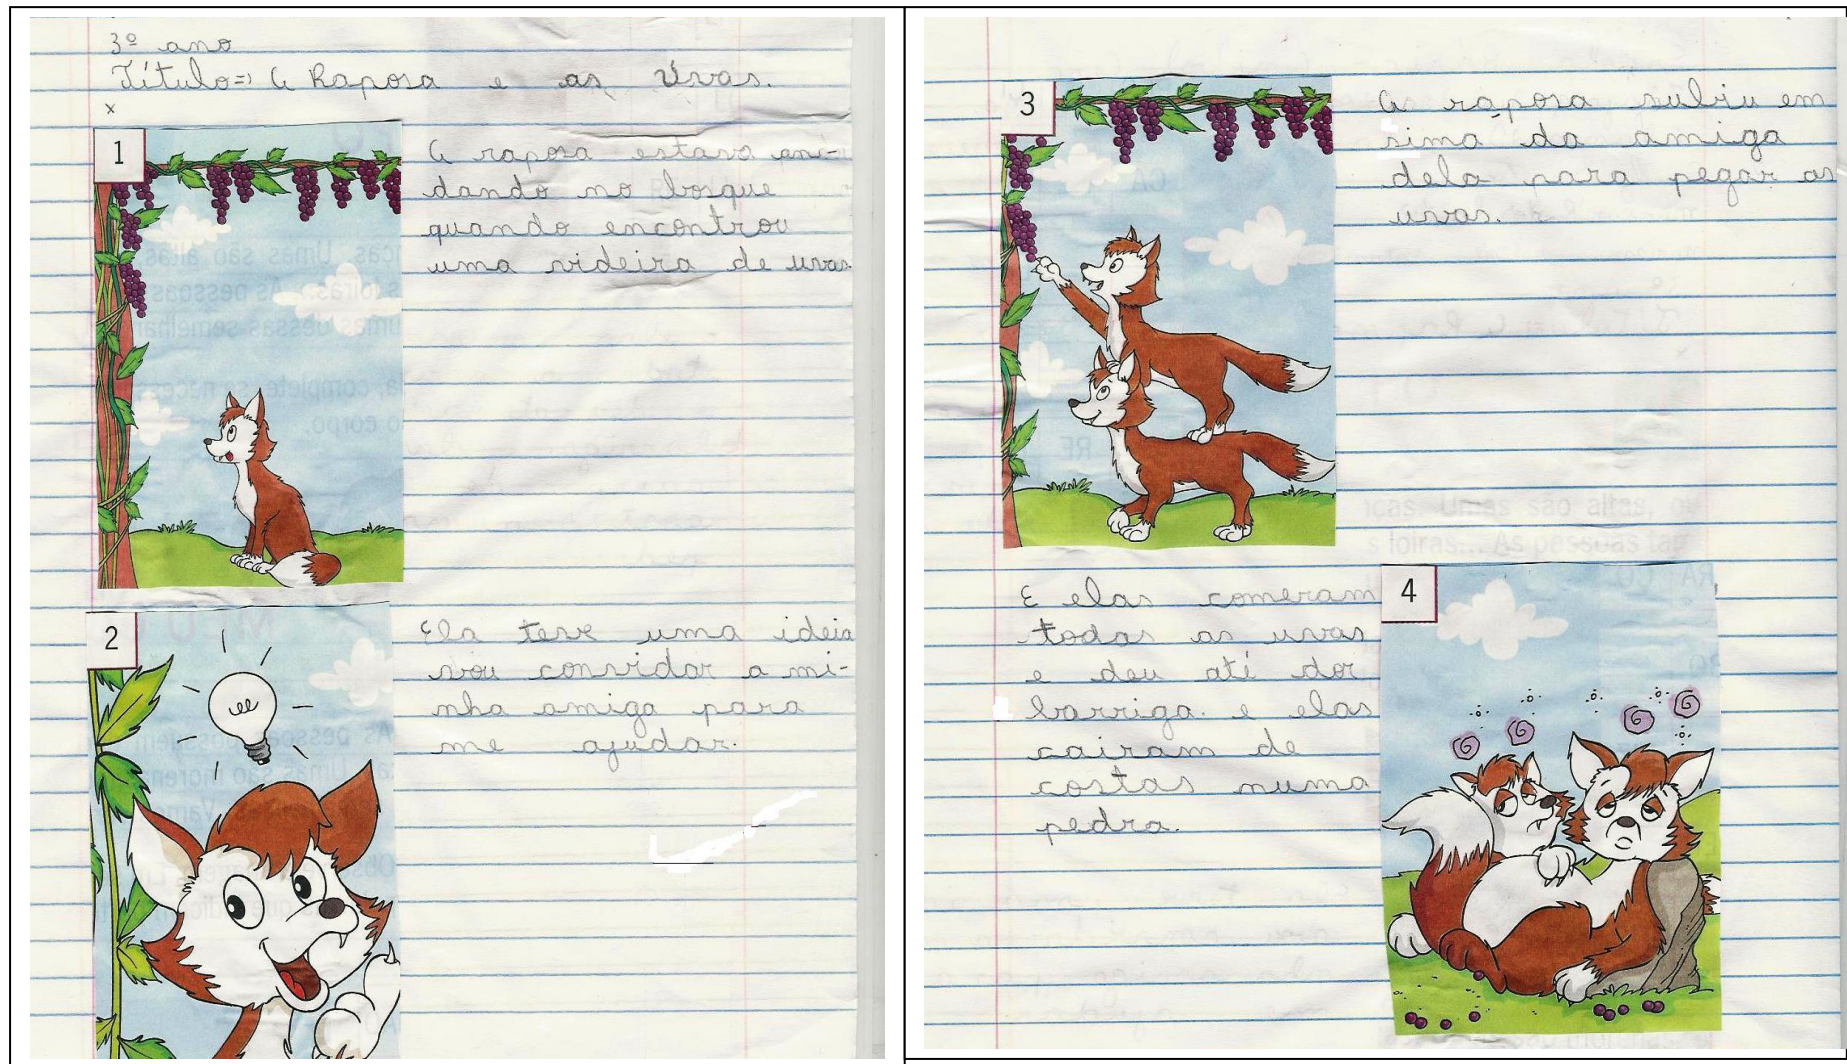 3º ano
Título => A Raposa e as Uvas.
x
1
A raposa estava ani-
dando no bosque
quando encontrou
uma videira de uvas
2
Ela teve uma ideia
vou convidar a mi-
nha amiga para
me ajudar.
3
A raposa subiu em
sima da amiga
dela para pegar as
uvas.
E elas comeram
todas as uvas
e deu até dor
barriga. e elas
cairam de
costas numa
pedra.
4